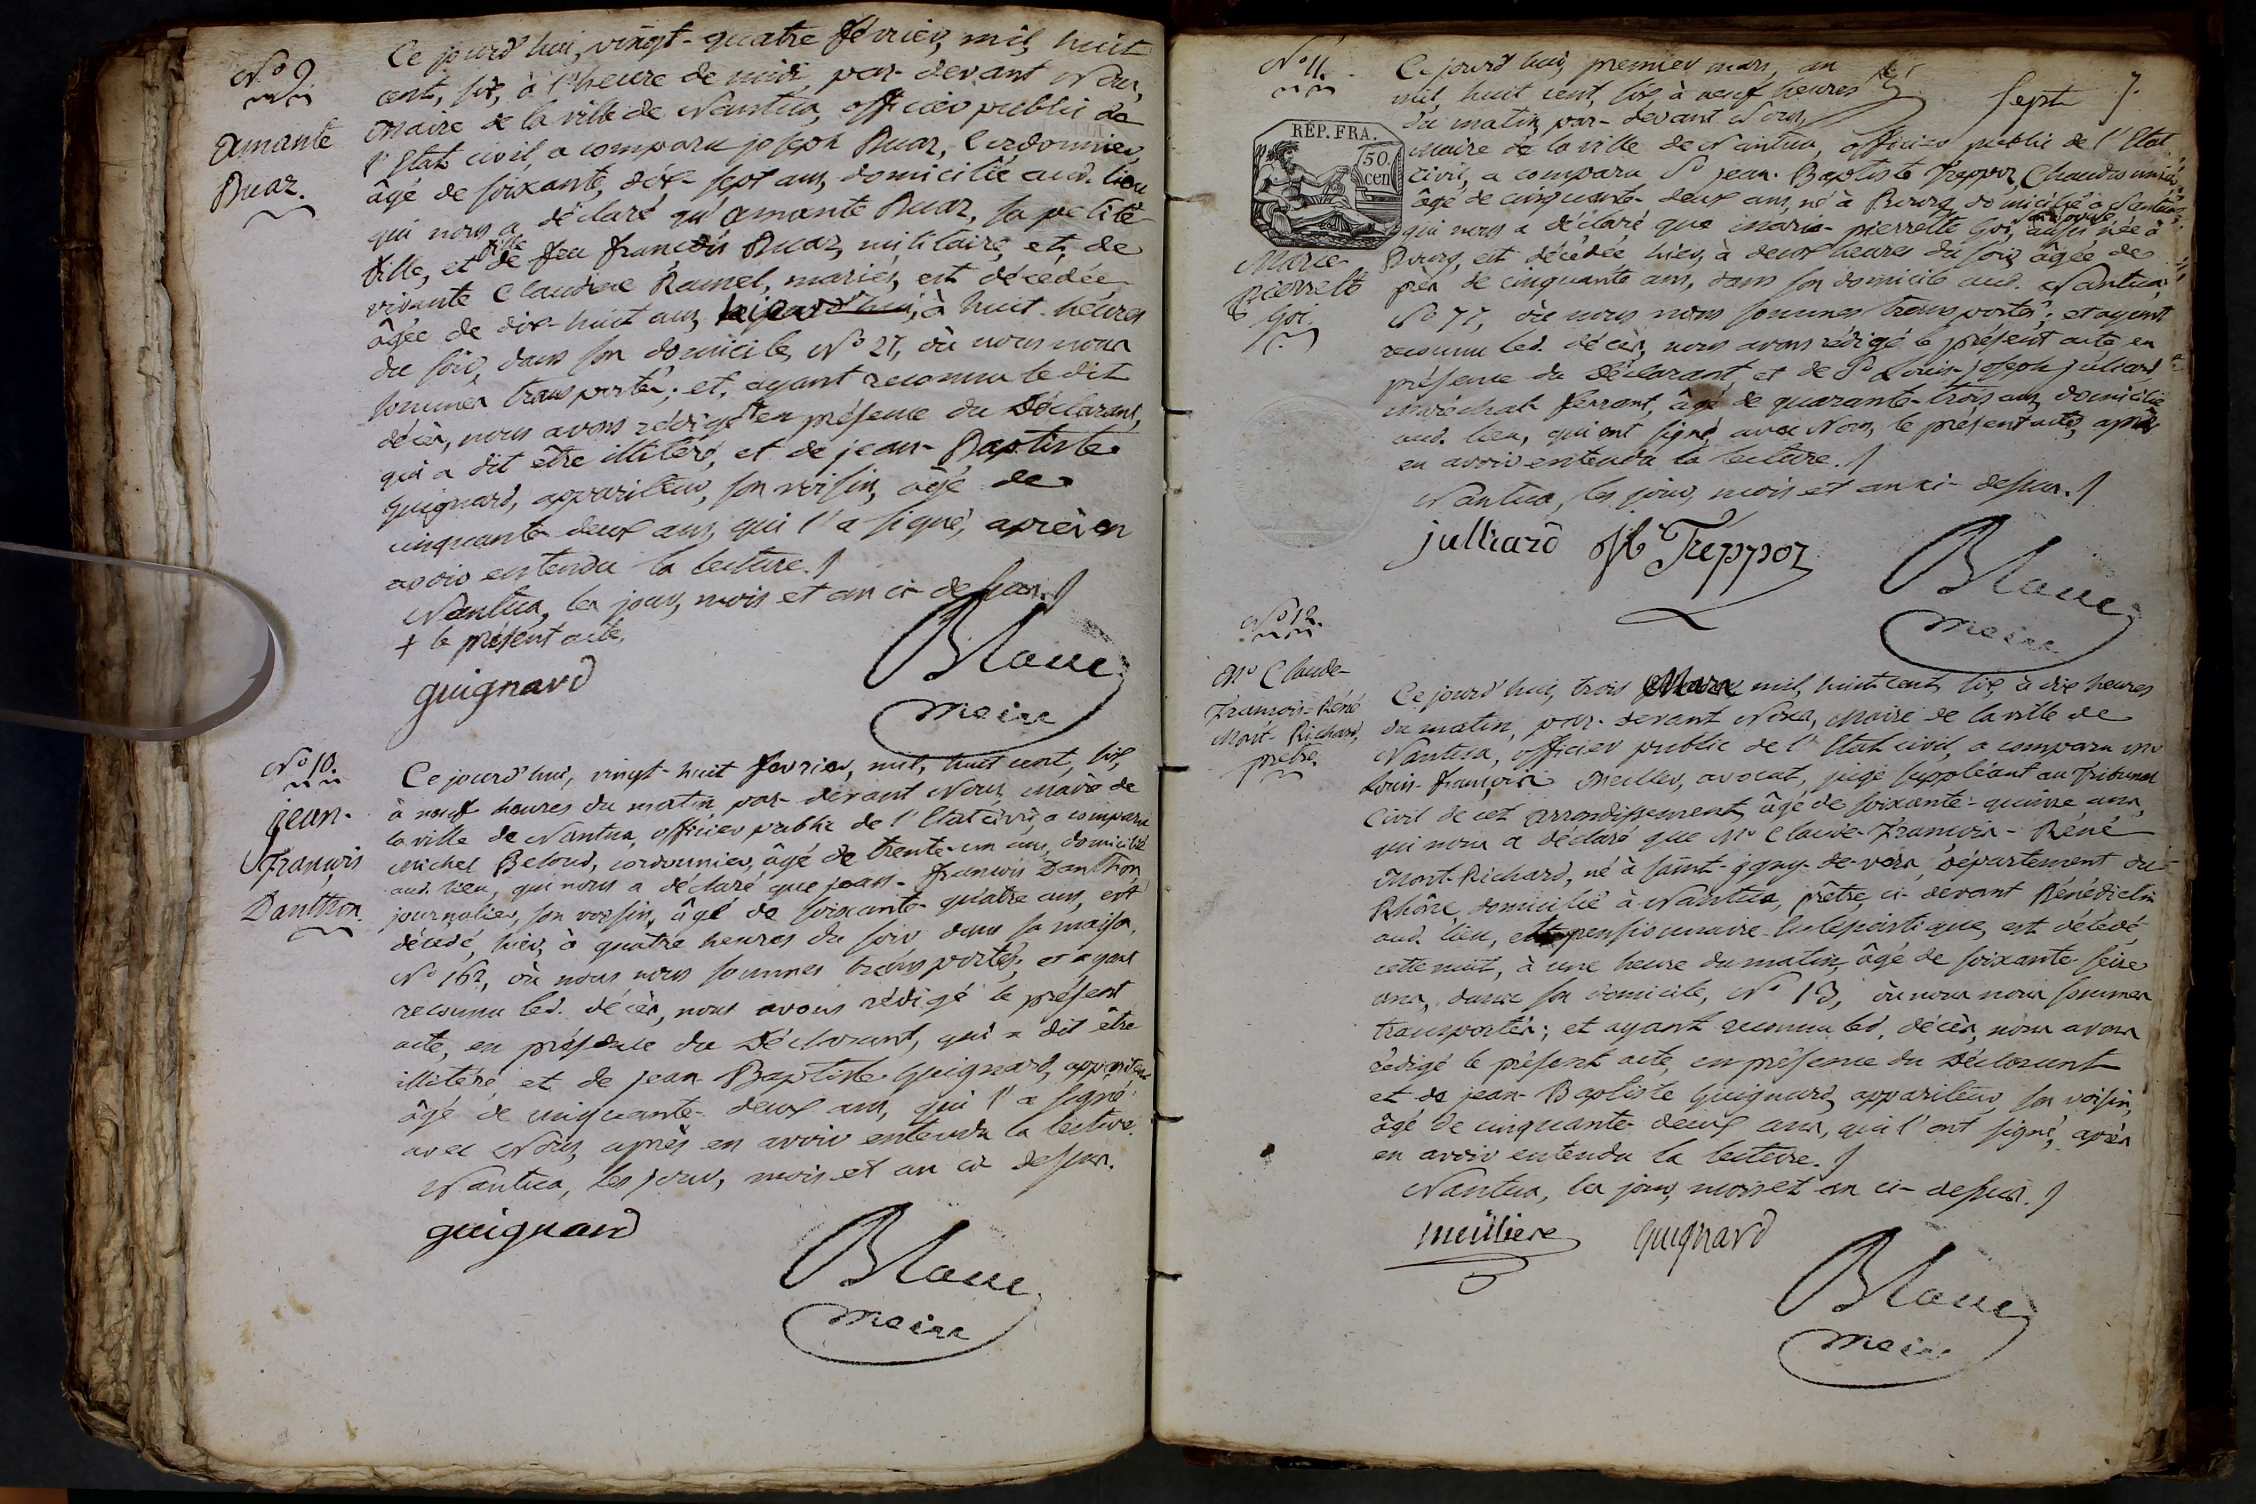 N.o 9.
Amante
Buaz.
Ce jourd'hui, vingt-quatre février, mil, huit
cent, six, à l'heure de midi, par-devant Nous,
Maire de la ville de Nantua, officier public de
l'Etat civil, a comparu joseph Buaz, Cordonnier,
âgé de soixante, dix-sept ans, domicilié aud. lieu
qui nous a déclaré qu'amante Buaz, sa petite
fille, et fille de feu françois Buaz, militaire, et, de
vivante Claudine Ramel, mariés, est décédée
âgée de dix-huit ans, à huit heures
du soir, dans son domicile, N.o 27, où nous nous
sommes transportés; et, ayant reconnu le dit
décès, nous avons rédigé + en présence du Déclarant,
qui a dit être illitéré, et de jean-Baptiste
Guignard, appariteur, son voisin, âgé de
cinquante-deux ans, qui l'a signé, après en
avoir entendu la lecture./
Nantua, les jour, mois et an ci-dessus./
+ le présent acte.
guignard
Blanc
maire
N.o 10.
jean-
François
Danthon.
Ce jourd'hui, vingt-huit février, mil, huit cent, six,
à neuf heures du matin, par-devant Nous, maire de
la ville de Nantua, officier public de l'Etat civil, a comparu
michel Beloud, cordonnier, âgé de trente-un ans, domicilié
aud. lieu, qui nous a déclaré que jean-françois Danthon,
journalier, son voisin, âgé de soixante-quatre ans, est
décédé, hier, à quatre heures du soir dans sa maison,
N.o 162, où nous nous sommes transportés; et ayant
reconnu led. décès, nous avons rédigé le présent
acte, en présence du Déclarant, qui a dit être
illitéré, et de jean-Baptiste Guignard, appariteur
âgé de cinquante-deux ans, qui l'a signé
avec Nous, après en avoir entendu la lecture.
Nantua, les jour, mois et an ci-dessus.
guignard
Blanc
maire
N.o 11.
Sept 7.
RÉP. FRA.
50.
cen
Marie
Pierrette
Goi.
Ce jourd'hui, premier mars, an
mil, huit cent, six, à neuf heures
du matin, par-devant Nous,
Maire de la ville de Nantua, officier public de l'Etat
civil, a comparu S.r jean-Baptiste Treppoz, Chaudronnier,
âgé de cinquante-deux ans, né à Bourg, domicilié à Nantua,
qui nous a déclaré que marie-pierrette Goi, son épouse, aussi née à
Bourg, est décédée hier, à deux heures du soir, âgée de
près de cinquante ans, dans son domicile aud. Nantua,
N.o 77, où nous nous sommes transportés; et ayant
reconnu led. décès, nous avons rédigé le présent acte, en
présence du Déclarant, et de S.r Louis-joseph julliard
maréchal-ferrant, âgé de quarante-trois ans, domicilié
aud. lieu, qui ont signé, avec Nous, le présent acte, après
en avoir entendu la lecture./
Nantua, les jour, mois et an ci-dessus./
julliard JB Treppoz
Blanc
maire
N.o 12.
M.r Claude-
François-Réné
Mont-Richard,
prêtre.
Ce jourd'hui, trois Mars mil, huit cent, six, à dix heures
du matin, par-devant Nous, Maire de la ville de
Nantua, officier public de l'Etat civil, a comparu M.r
Louis-françois Meiller, avocat, juge suppléant au Tribunal
Civil de cet arrondissement, âgé de soixante-quinze ans,
qui nous a déclaré que M.r Claude-François-Réné
Mont-Richard, né à saint-igny-de-vers, département du
Rhône, domicilié à Nantua, prêtre, ci-devant Bénédictin
aud. lieu, pensionnaire Ecclésiastique, est décédé
cette nuit, à une heure du matin, âgé de soixante-seize
ans, dans son domicile, N.o 13, où nous nous sommes
transportés; et ayant reconnu led. décès, nous avons
rédigé le présent acte, en présence du Déclarant
et de jean-Baptiste Guignard, appariteur, son voisin,
âgé de cinquante-deux ans, qui l'ont signé, après
en avoir entendu la lecture./
Nantua, les jour, mois et an ci-dessus./
meilliere guignard
Blanc
maire